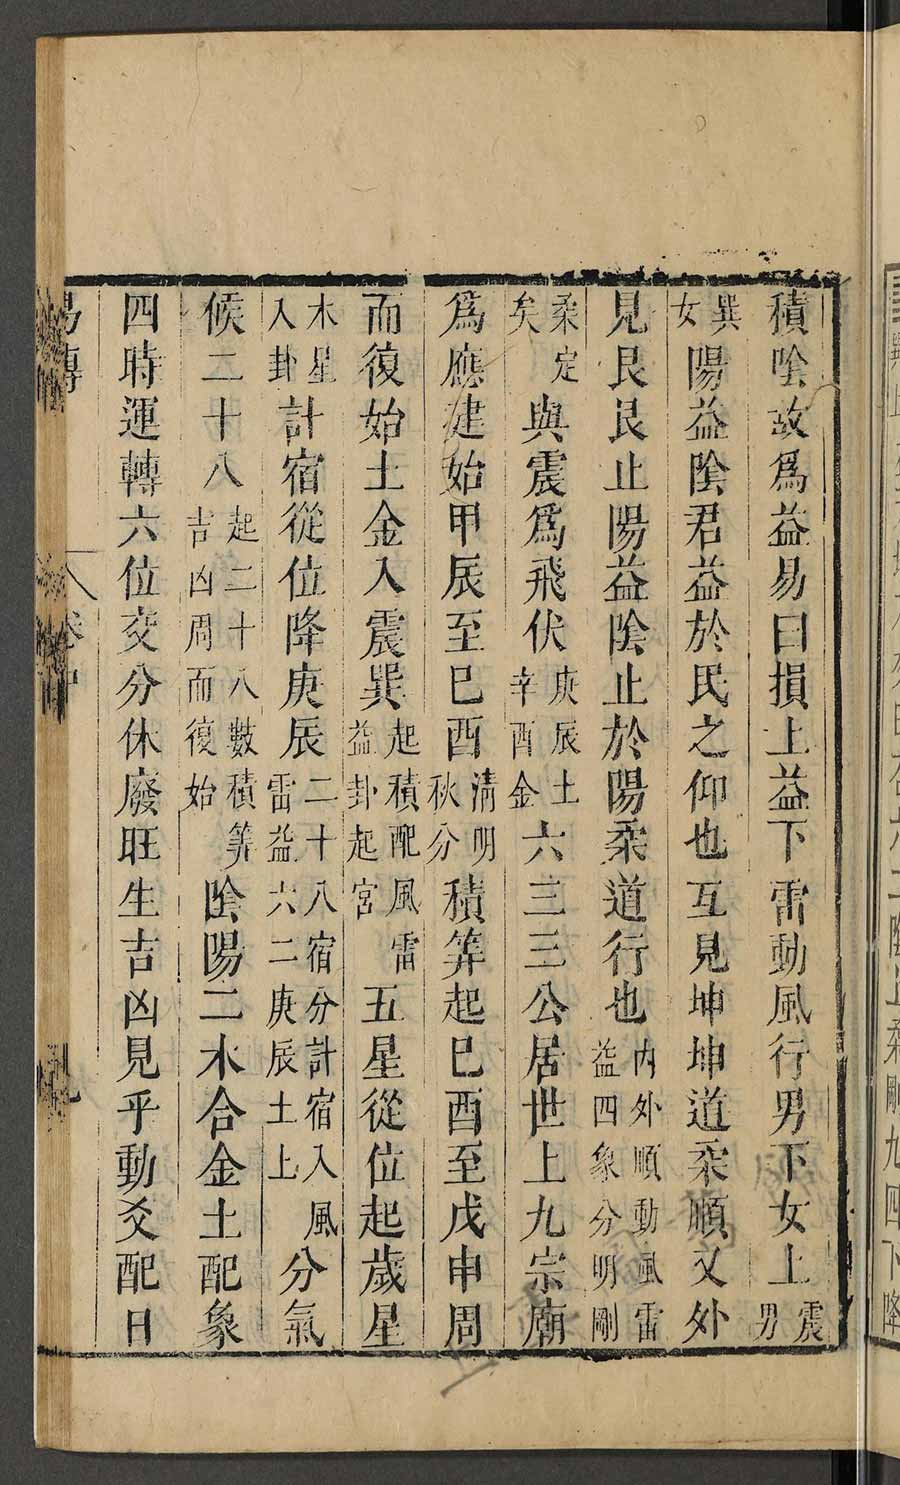 積陰故爲益易曰損上益下雷動風行男下女上震男
巽女陽益陰君益於民之仰也互見坤坤道柔順又外
見艮艮止陽益陰止於陽柔道行也內外順動風雷益四象分明剛
柔定矣與震爲飛伏庚辰土辛酉金六三三公居世上九宗廟
爲應建始甲辰至巳酉清明秋分積筭起巳酉至戊申周
而復始土金入震巽起積配風雷益卦起宮五星從位起歲星
木星入卦計宿從位降庚辰二十八宿分計宿入風雷益六二庚辰土上分氣
候二十八起二十八數積筭吉凶周而復始陰陽二木合金土配象
四時運轉六位交分休廢旺生吉凶見乎動爻配日
易傳 卷中 九